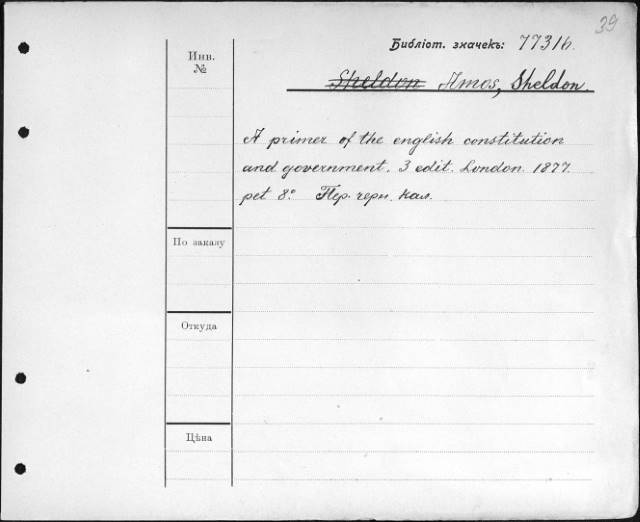 39
Библіот. значекъ: 77316.
Инв.
№
Sheldon Amos, Sheldon.
A primer of the english constitution
and government. 3 edit. London. 1877.
pet 8º. Пер. черн. кал.
По заказу
Откуда
Цѣна